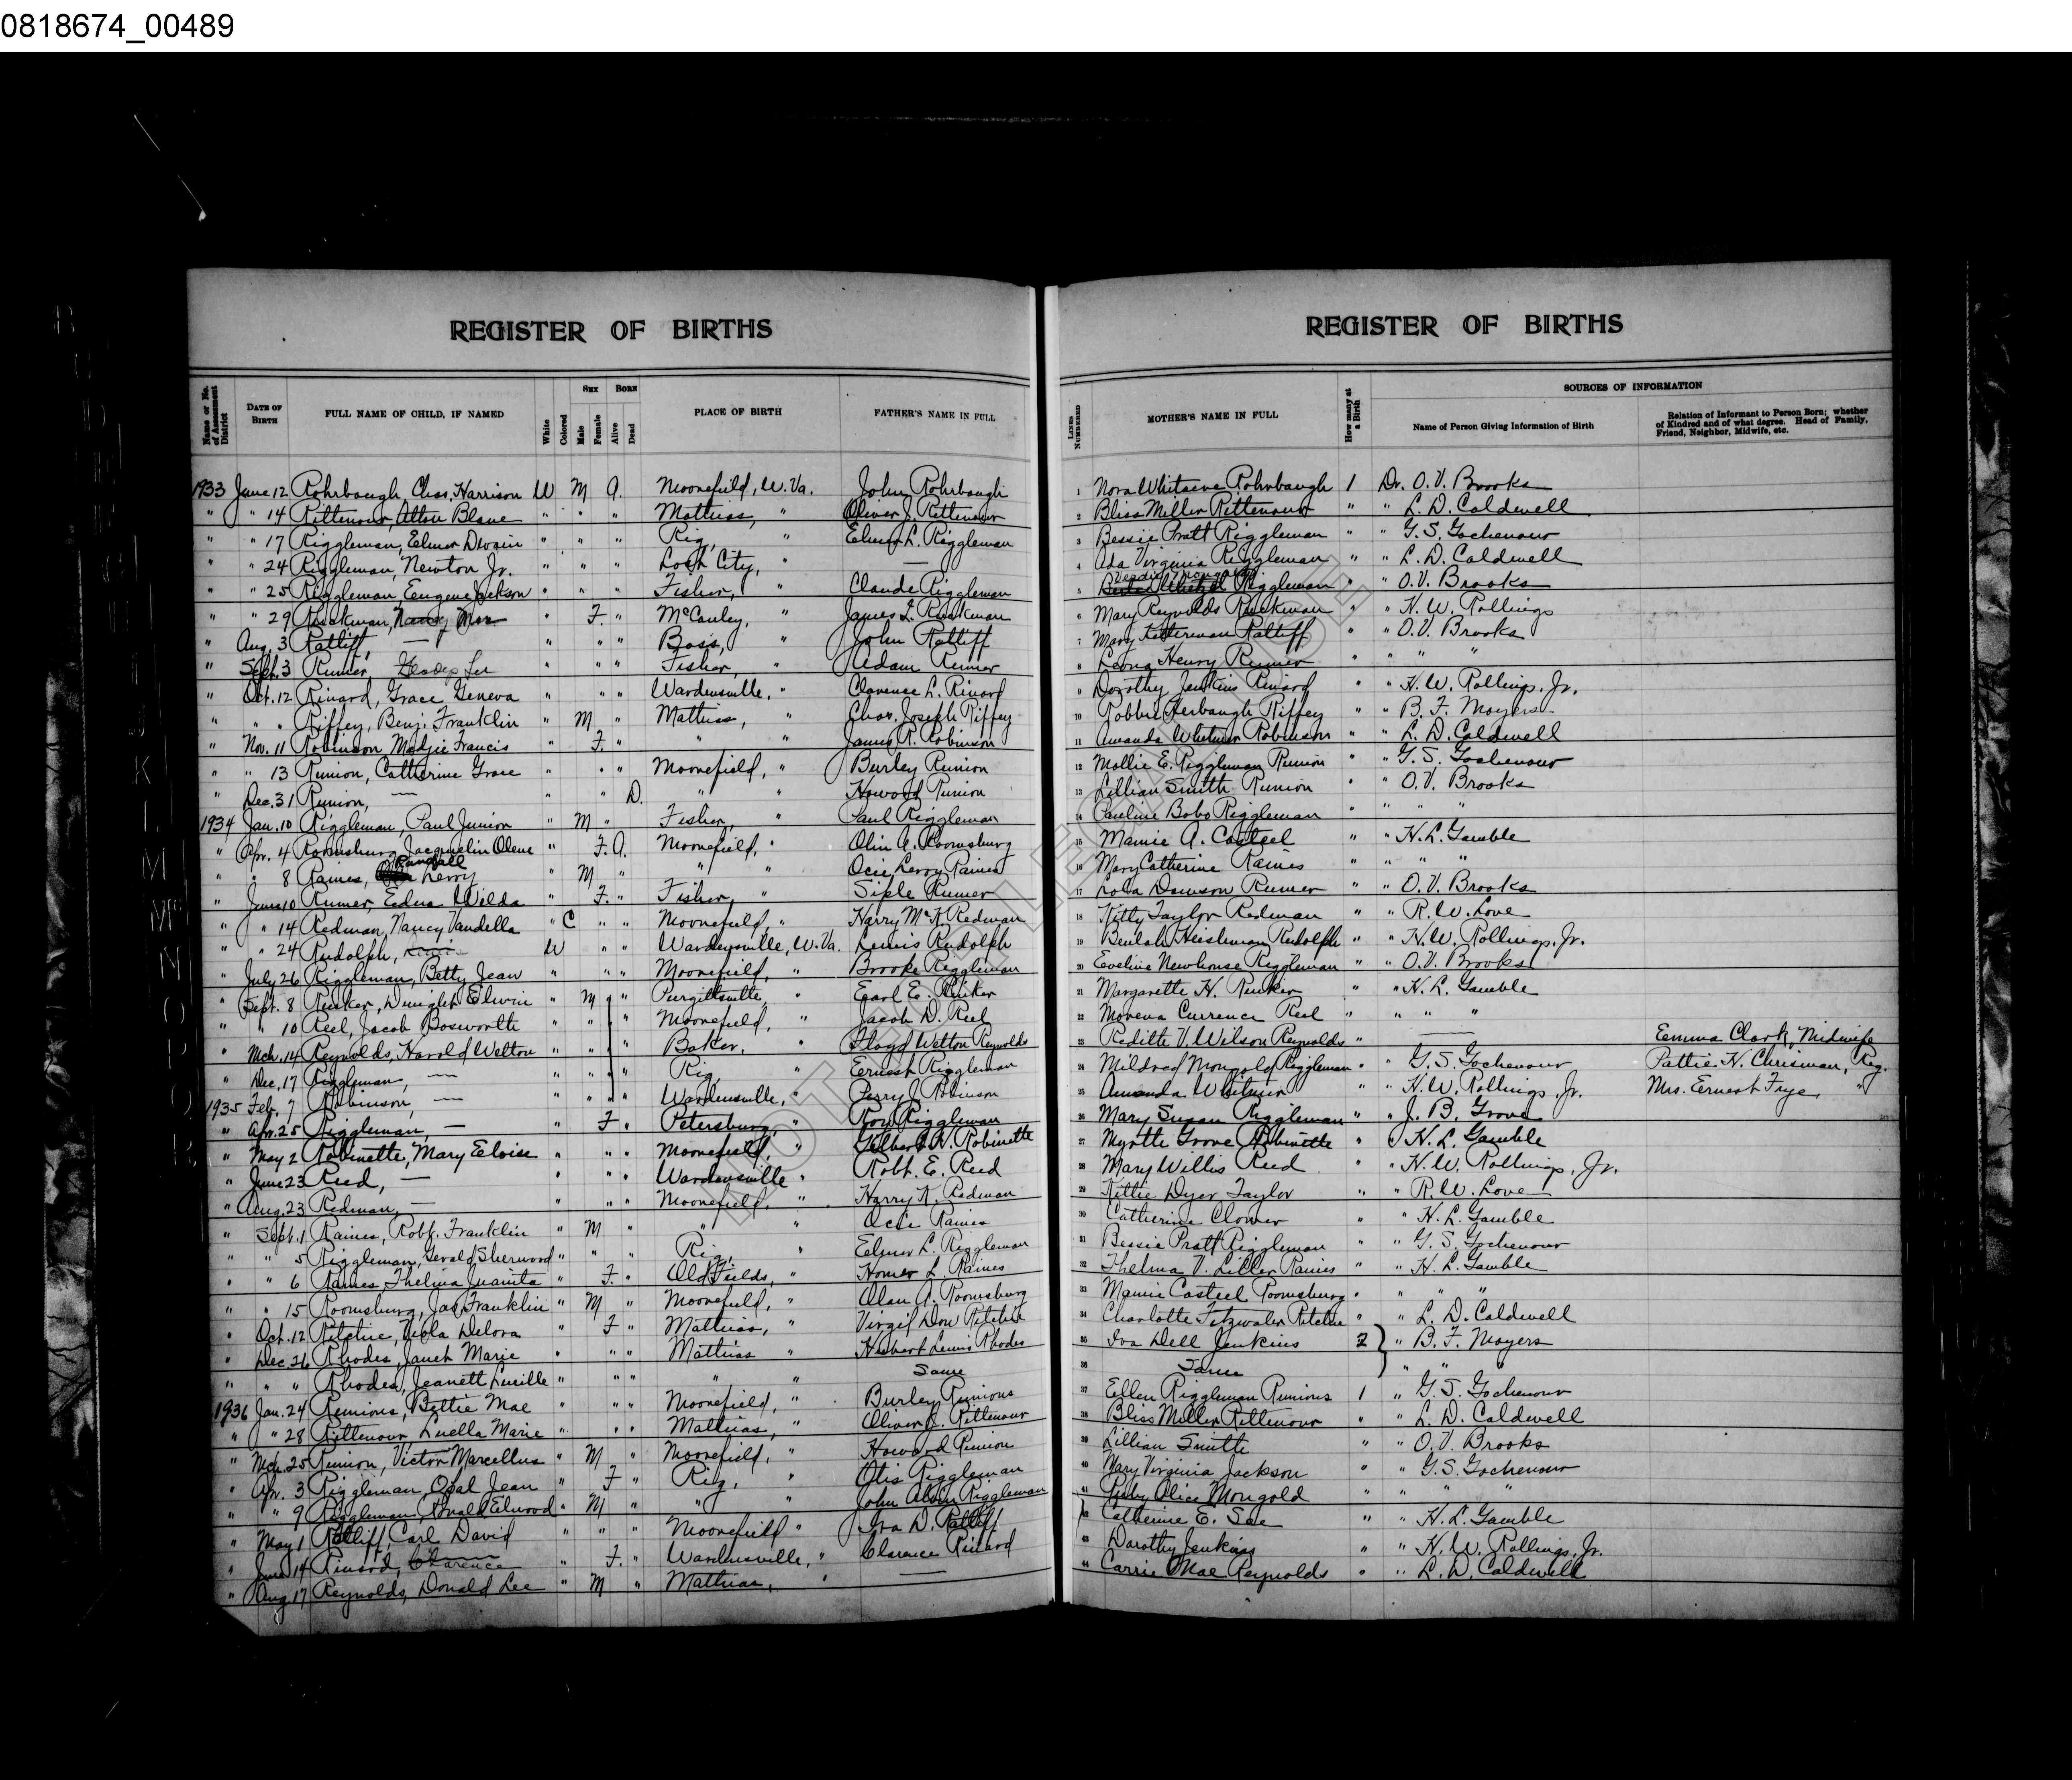 0818674_00489
REGISTER OF BIRTHS
Name or No. of Assessment District
DATE OF BIRTH
FULL NAME OF CHILD, IF NAMED
White
Colored
SEX
Male
Female
BORN
Alive
Dead
PLACE OF BIRTH
FATHER'S NAME IN FULL
1933 June 12 Rohrbaugh, Chas. Harrison W M A. Moorefield, W. Va. John Rohrbaugh
" " 14 Rittenour, Alton Blane " " " Mathias, " Oliver J. Rittenour
" " 17 Riggleman, Elmer Dwain " " " Rig, " Elmer L. Riggleman
" " 24 Riggleman, Newton Jr. " " " Lost City, " —
" " 25 Riggleman, Eugene Jackson " " " Fisher, " Claude Riggleman
" " 29 Ruckman, Nancy Mae " F. " McCauley, " James L. Ruckman
" Aug. 3 Ratliff, — " " " Bass, " John Ratliff
" Sept. 3 Rumer, Gladys Lu " " " Fisher, " Adam Rumer
" Oct. 12 Rinard, Grace Geneva " " " Wardensville, " Clarence L. Rinard
" " " Riffey, Benj. Franklin " M " Mathias, " Chas. Joseph Riffey
" Nov. 11 Robinson, Madjie Francis " F. " " " James A. Robinson
" " 13 Runion, Catherine Grace " " " Moorefield, " Burley Runion
" Dec. 31 Runion, — " " D. " " Howard Runion
1934 Jan. 10 Riggleman, Paul Junior " M " Fisher, " Paul Riggleman
" Apr. 4 Roomsburg, Jacquelin Olene " F. A. Moorefield, " Olin A. Roomsburg
" " 8 Raines, Randall Lerry " M " " " Ocie Leroy Raines
" June 10 Rumer, Edna Wilda " F. " Fisher, " Siple Rumer
" " 14 Redman, Nancy Vandella " C " " Moorefield, " Harry McK. Redman
" " 24 Rudolph, W " " Wardensville, W. Va. Lewis Rudolph
" July 26 Riggleman, Betty Jean " " " Moorefield, " Brooke Riggleman
" Sept. 8 Runker, Dwight Elwin " M " Purgittsville, " Earl E. Runker
" " 10 Reel, Jacob Bosworth " " " Moorefield, " Jacob D. Reel
" Mch. 14 Reynolds, Harold Welton " " " Baker, " Floyd Welton Reynolds
" Dec. 17 Riggleman, — " " " Rig, " Ernest Riggleman
1935 Feb. 7 Robinson, — " " " Wardensville, " Perry J. Robinson
" Apr. 25 Riggleman, — " F " Petersburg, " Roy Riggleman
" May 2 Robinette, Mary Eloise " " " Moorefield, " Gilbert H. Robinette
" June 23 Reed, — " " " Wardensville " Robt. E. Reed
" Aug. 23 Redman, — " " " Moorefield, " Harry K. Redman
" Sept. 1 Raines, Robt. Franklin " M " " " Ocie Raines
" " 5 Riggleman, Gerald Sherwood " " " Rig, " Elmer L. Riggleman
" " 6 Raines, Thelma Juanita " F. " Old Fields, " Homer L. Raines
" " 15 Roomsburg, Jas. Franklin " M " Moorefield, " Olan A. Roomsburg
" Oct. 12 Ritchie, Viola Delora " F " Mathias, " Virgil Don Ritchie
" Dec. 26 Rhodes, Janet Marie " " " Mathias " Hubert Lewis Rhodes
" " " Rhodes, Jeanett Lucille " " " " " Same
1936 Jan. 24 Runions, Bettie Mae " " " Moorefield, " Burley Runions
" " 28 Rittenour, Luella Marie " " " Mathias, " Oliver J. Rittenour
" Mch. 25 Runion, Victor Marcellus " M " Moorefield, " Howard Runion
" Apr. 3 Riggleman, Opal Jean " F " Rig, " Otis Riggleman
" " 9 Riggleman, Ronald Elwood " M " " " John Alvin Riggleman
" May 1 Ratliff, Carl David " " " Moorefield " Ira D. Ratliff
" June 14 Rinard, Clarence " F. " Wardensville, " Clarence Rinard
" Aug 17 Reynolds, Donald Lee " M " Mathias, " —
REGISTER OF BIRTHS
LINES NUMBERED
MOTHER'S NAME IN FULL
How many at a Birth
SOURCES OF INFORMATION
Name of Person Giving Information of Birth
Relation of Informant to Person Born; whether of Kindred and of what degree. Head of Family, Friend, Neighbor, Midwife, etc.
1 Nora Whitacre Rohrbaugh 1 Dr. O. V. Brooks
2 Bliss Miller Rittenour " " L. D. Caldwell
3 Bessie Pratt Riggleman " " G. S. Gochenour
4 Ada Virginia Riggleman " " L. D. Caldwell
5 Riggleman " " O. V. Brooks
6 Mary Reynolds Ruckman " " H. W. Rollings
7 Mary Ketterman Ratliff " " O. V. Brooks
8 Leona Henry Rumer " " " "
9 Dorothy Jenkins Rinard " " H. W. Rollings, Jr.
10 Robbie Riffey " " B. F. Moyers
11 Amanda Whitmer Robinson " " L. D. Caldwell
12 Mollie E. Riggleman Runion " " G. S. Gochenour
13 Lillian Smith Runion " " O. V. Brooks
14 Pauline Bobo Riggleman " " " "
15 Mamie A. Casteel " " H. L. Gamble
16 Mary Catherine Raines " " " "
17 Lola Dawson Rumer " " O. V. Brooks
18 Kitty Taylor Redman " " R. W. Love
19 Beulah Heishman Rudolph " " H. W. Rollings, Jr.
20 Eveline Newhouse Riggleman " " O. V. Brooks
21 Margarette H. Runker " " H. L. Gamble
22 Moveva Currence Reel " " " "
23 Reditte V. Wilson Reynolds " — Emma Clark, Midwife
24 Mildred Mongold Riggleman " " G. S. Gochenour Pattie H. Chrisman, Reg.
25 Amanda Whitmer " " H. W. Rollings, Jr. Mrs. Ernest Frye, "
26 Mary Susan Riggleman " " J. B. Grove
27 Myrtle Grove Robinette " " H. L. Gamble
28 Mary Willis Reed " " H. W. Rollings, Jr.
29 Kittie Dyer Taylor " " R. W. Love
30 Catherine Clower " " H. L. Gamble
31 Bessie Pratt Riggleman " " G. S. Gochenour
32 Thelma V. Liller Raines " " H. L. Gamble
33 Mamie Casteel Roomsburg " " " "
34 Charlotte Fitzwater Ritchie " " L. D. Caldwell
35 Iva Dell Jenkins 2 " B. F. Moyers
36 Same " "
37 Ellen Riggleman Runions 1 " G. S. Gochenour
38 Bliss Miller Rittenour " " L. D. Caldwell
39 Lillian Smith " " O. V. Brooks
40 Mary Virginia Jackson " " G. S. Gochenour
41 Ruby Alice Mongold " " " "
42 Catherine E. See " " H. L. Gamble
43 Dorothy Jenkins " " H. W. Rollings, Jr.
44 Carrie Mae Reynolds " " L. D. Caldwell